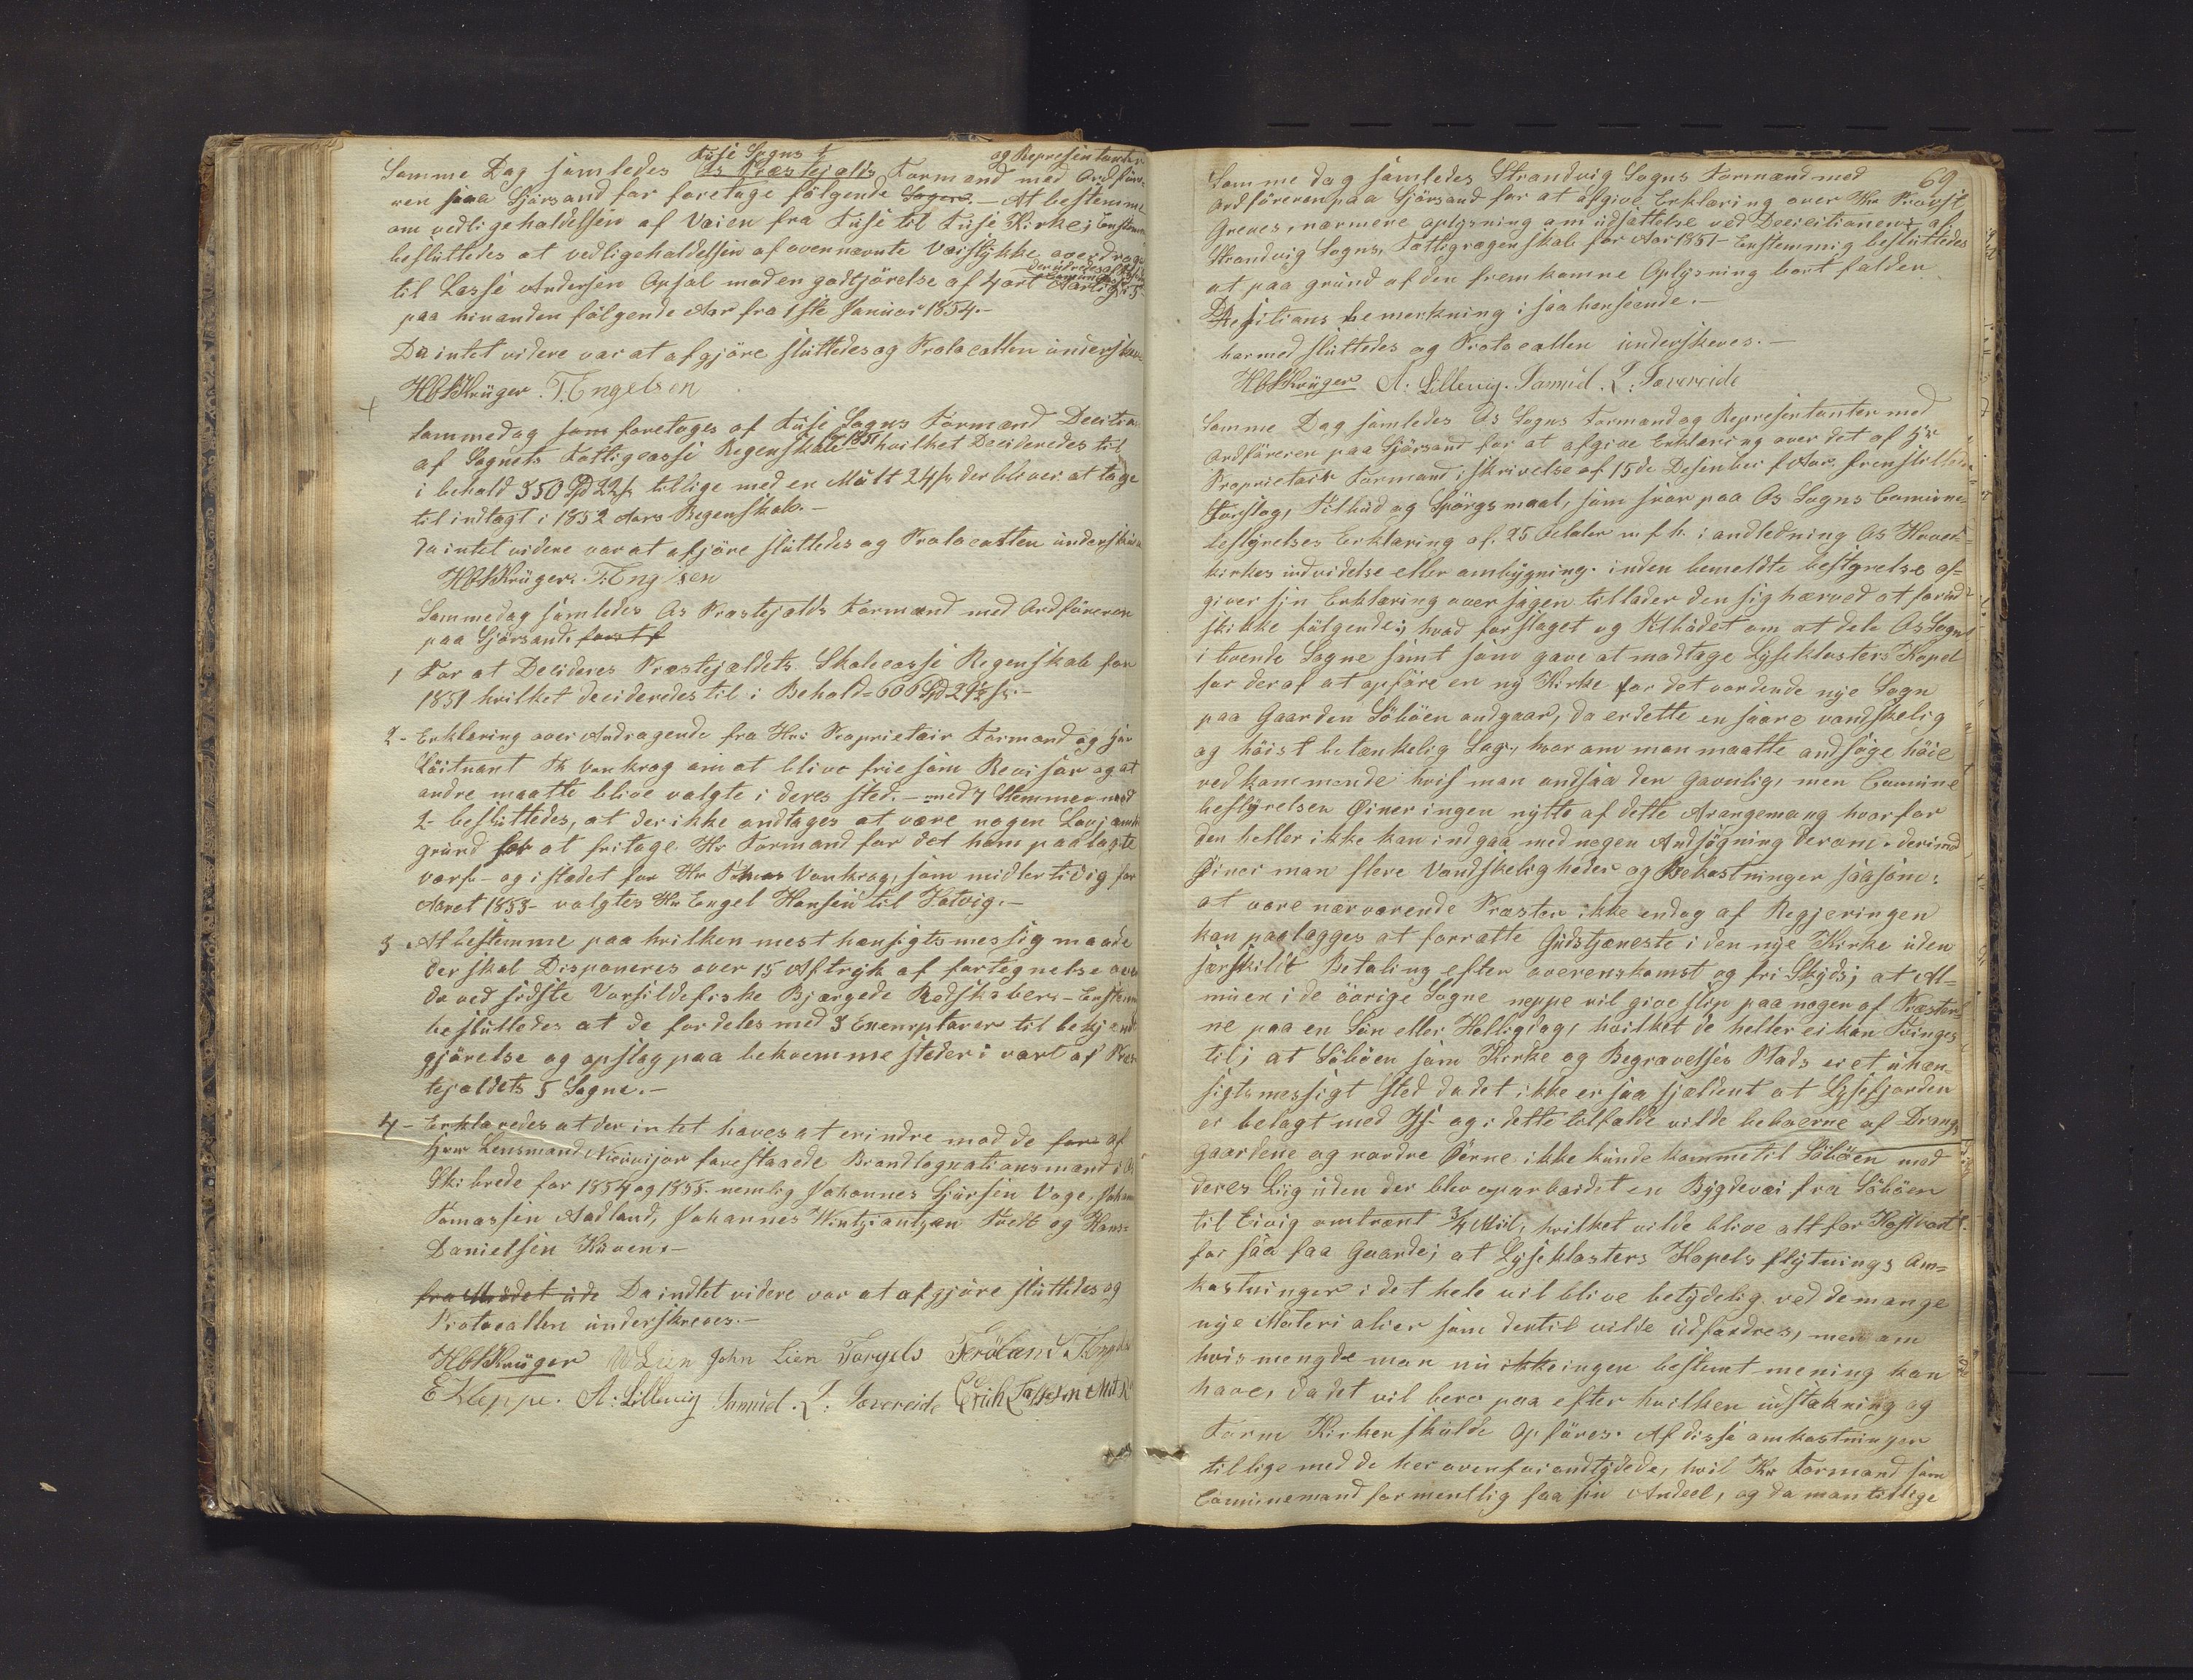 Samme Dag samledes Fuse Sogns Formænd med Ordføre- og Representanter
ren paa Gjørsand for foretage følgende Sager. - At bestemme
om vedligeholdelsen af Veien fra Fuse til Fuse Kirke; Enstem
besluttedes at vedligeholdelsen af ovennævnte Veistykke overdrages
til Lasse Andersen Opsal mod en godtjørelse af 4 ort Aarlig i 5
paa hinanden følgende Aar fra 1ste Januar 1854.-
Da intet videre var at afgjøre sluttedes og Protocollen underskrev
HGKrüger. T. Engelsen
Sammedag som foretages af Fuse Sogns Formænd Decition
af Sognets Fattigcasse Regenskab 1851 hvilket Decideredes til
i behold 350 Spd 22 s tillige med en Mult 24 s der bliver at tage
til indtægt i 1852 Aars Regenskab.-
da intet videre var at afjøre sluttedes og Protocollen underskrev
HGKrüger. T. Engelsen
Sammedag samledes Os Præstejælds Formænd med Ordføreren
paa Gjørsand. først f
1 For at Decideres Præstejældets Skolecasse Regenskab for
1851 hvilket decideredes til i Behold 606 Spd 29½ s.-
2- Erklæring over Andragende fra Hr. Proprietair Formand og Hr
Løitnant Th Von Krog om at blive frie som Revisor og at
andre maatte blive valgte i deres sted.- med 7 Stemmer mod
2 besluttedes, at der ikke andtages at være nogen Lovjæmt
grund for at fritage Hr Formand for det ham paalagte
værf- og istædet for Hr Von Krog, som midlertidig for
Aaret 1853- valgtes Hr Engel Hansen til Hatvig.-
3. At bestemme paa hvilken mest hensigtsmessig maade
der skal Disponeres over 15 Aftryk af fortegnelse over
de ved sidste Vorsildefiske Bjærgede Redskaber.- Enstem
besluttedes at de fordeles med 3 Exemplarer til bekjendt
gjørelse og opslag paa bekvemme steder i vært af Præs
tejældets 5 Sogne.-
4- Erklæredes at der intet haves at erindre mod de for af
Herr Lensmand foreslaaede Brandtagxationsmænd i Os
Skibrede for 1854 og 1855. nemlig Johannes Gjørsen Vage, Johan
Tomassen Aadland, Johannes Tvedt og Hans
Danielsen Hoven.-
fra Mødet ude Da indtet videre var at afgjøre sluttedes og
Protocollen underskreves.-
HGKrüger W Lien John Lien Torgels Ferøland T. Engelsen
E Kleppe. A: Lillevig Samuel. L: Tævereide Erich
69
Samme dag samledes Strandvig Sogns Formænd med
Ordføreren paa Gjørsand for at afgive Erklæring over Hr Provst
Greves, nærmere oplysning om udsættelse ved Decicitionens af
Strandvig Sogns, Fattigregenskab for Aar 1851- Enstemmig besluttedes
at paa grund af den fremkomne Oplysning bortfalden
Desitions bemerkning i saa henseende.-
hermed sluttedes og Protocollen underskeves.-
HGKrüger A: Lillevig. Samuel. L: Tævereide
Samme Dag samledes Os Sogns Formænd og Representanter med
Ordføreren paa Gjørsand for at afgive Erklæring over det af Hr
Proprietair Formand i skrivelse af 15de Desember f Aar. fremstillede
Forslag, Tilbud og Spørgsmaal, som svar paa Os Sogns Comune-
bestyrelses Erklæring af 25 Octobr n. f. h. i andledning Os Hoved-
kirkes indvidelse eller ombygning. inden bemeldte bestyrelse af-
giver sin Erklæring over sagen tillader den sig hærved at forud-
skikke følgende; hvad forslaget og Tilbudet om at dele Os Sogn
i tvende Sogne samt som gave at modtage Lyseklosters Kapel
for deraf at opføre en ny Kirke for det vordende nye Sogn
paa Gaarden Søbøen andgaar, da er dette en saare vandskelig
og høist betænkelig Sag, hvor om man maatte andsøge høie
vedkommende hvis man andsaa den gavnlig, men Comune
bestyrelsen Øiner ingen nytte af dette Arangemang hvorfor
den heller ikke kan indgaa med nogen Andsøgning derom. derimod
Øiner man flere Vandskeligheder og Bekostninger saasom:
at vore nærværende Præster ikke endog af Regjeringen
kan paalægges at forrætte Gudstjæneste i den nye Kirke uden
særskildt Betaling efter overenskomst og fri Skyds; at Al-
muen i de øvrige Sogne neppe vil give slip paa nogen af Præster-
ne paa en Søn eller Helligdag, hvilket de heller ei kan Tvinges
til; at Søbøen som Kirke og Begravelses Plads er et uhæn-
sigtsmessigt sted da det ikke er saa sjældent at Lysefjorden
er belagt med Is- og i dette tilfælde vilde beboerne af Drangs
gaardene og nordre Øerne ikke kunde komme til Søbøen med
deres Liig uden der blev oparbeidet en Bygdevei fra Søbøen
til Eivig omtrent 3/4 Miil, hvilket vilde blive alt for Kostbart
for saa faa Gaarde; at Lyseklosters Kapels flytnings Om-
kostninger i det hele vil blive betydelig. ved de mange
nye Materialier som dertil vilde udfordres, men om
hvis mengde man nu ikke ingen bestemt mening kan
have, da det vil bero paa efter hvilken udstækning og
Form Kirken skulde Opføres. Af disse omkostninger
tillige med de her ovenfor andtydede, hvil Hr Formand som
Comunemand formentlig faa sin Andeel, og da man tillige